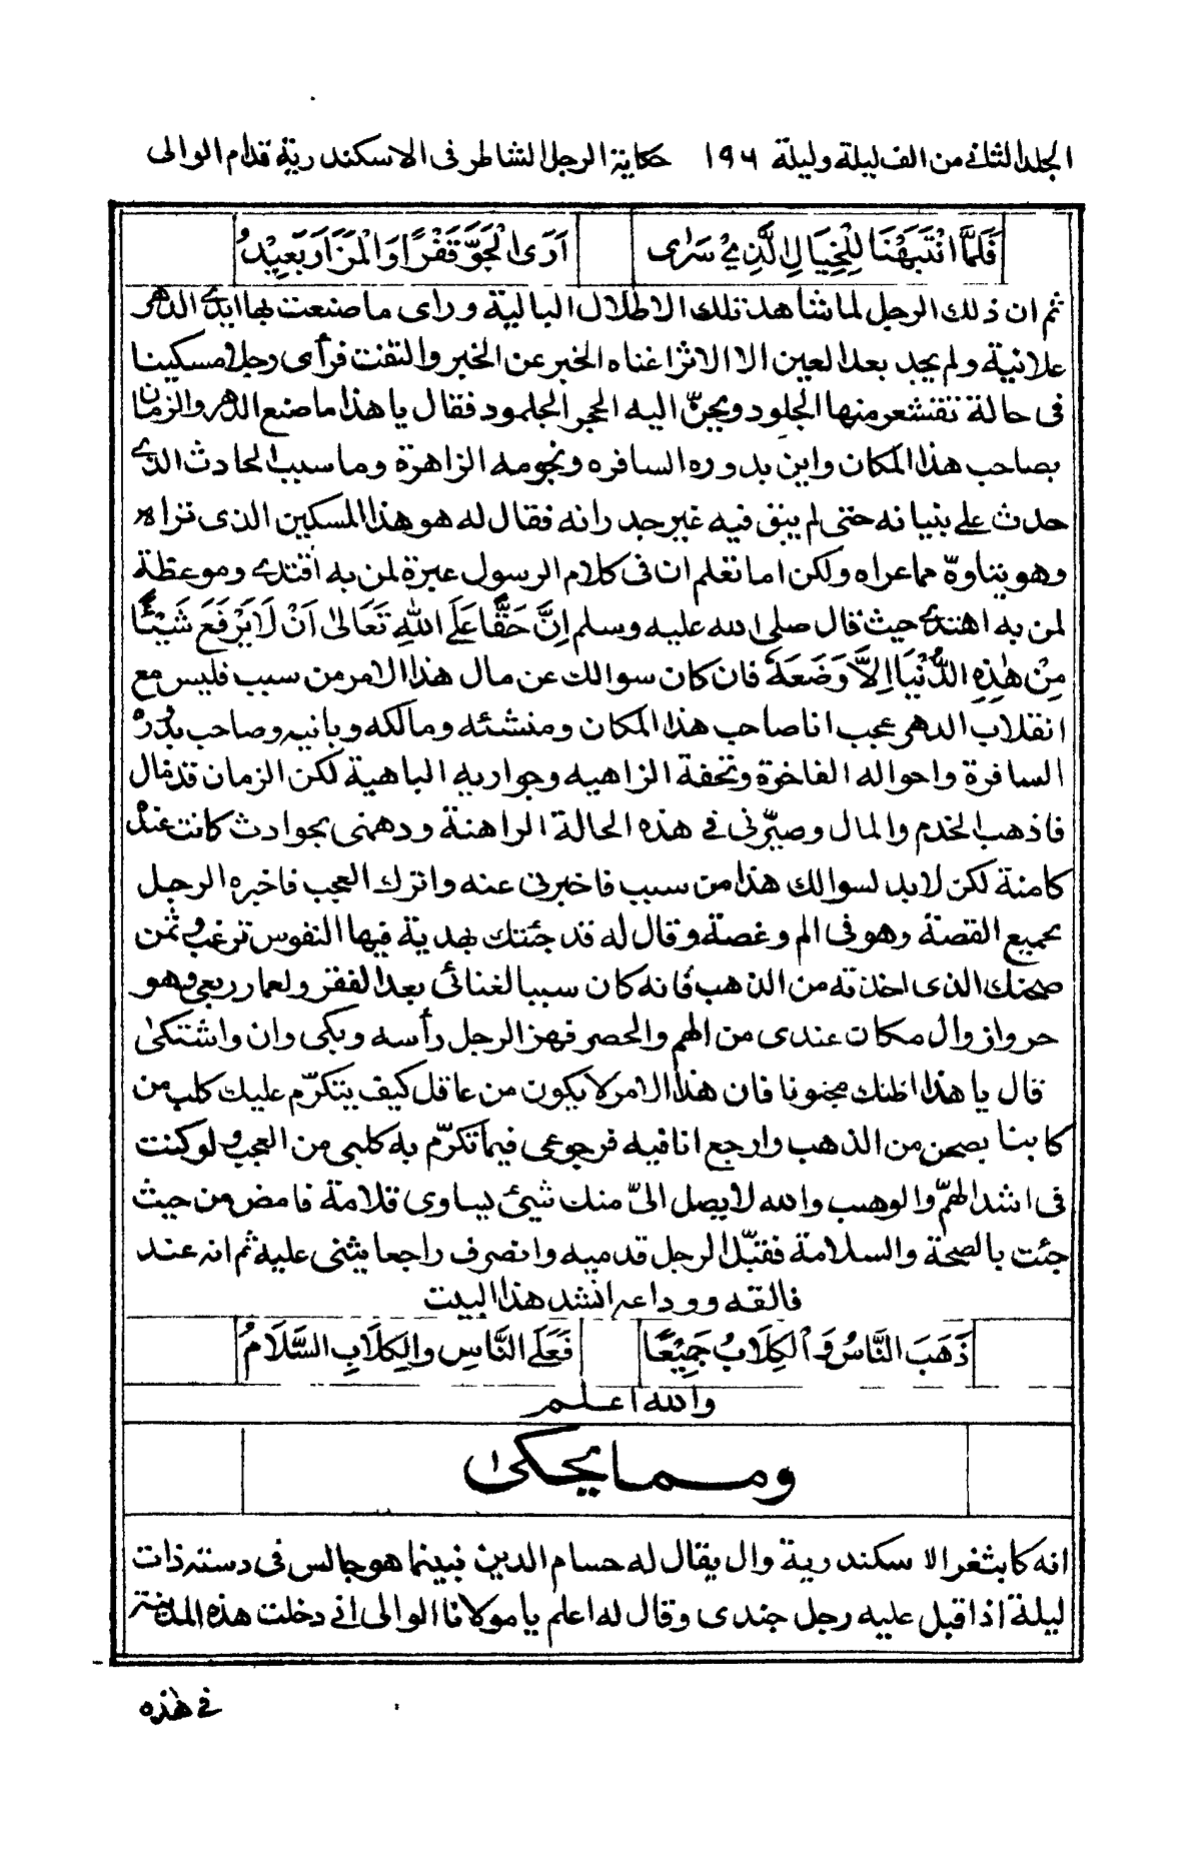 الجلد الثانے من الف ليلة وليلة ١٩٦ حكاية الرجل الشاطر فى الاسكندرية قدام الوالى
فَلَمَّا انْتَبَهْنَا لِلْخِيَالِ الَّذِيْ سَرَاى اَرَى الْجَوَّ قَفْرًا وَالْمَزَارَ بَعِيْدُ
ثم ان ذلك الرجل لما شاهد تلك الاطلال البالية وراى ما صنعت بها ايدے الدهر
علانية ولم يجد بعد العين الا الاثر اغناه الخبر عن الخبر والتفت فرأى رجلا مسكينا
فى حالة تقشعر منها الجلود ويحنّ اليه الحجر الجلمود فقال يا هذا ما صنع الدهر والزمان
بصاحب هذا المكان واين بدوره السافره ونجومه الزاهرة وما سبب الحادث الذے
حدث علے بنيانه حتى لم يبق فيه غير جدرانه فقال له هو هذا المسكين الذى تراه
وهو يتاوّه مما عراه ولكن اما تعلم ان فى كلام الرسول عبرة لمن به اقتدے وموعظة
لمن به اهتدے حيث قال صلى الله عليه وسلم اِنَّ حَقًّا عَلَى اللّٰهِ تَعَالىٰ اَنْ لَا يَرْفَعَ شَيْئًا
مِنْ هٰذِهِ الدُّنْيَا اِلَّا وَضَعَهٗ فان كان سوالك عن مال هذا الامر من سبب فليس مع
انقلاب الدهر عجب انا صاحب هذا المكان ومنشئه ومالكه وبانيه وصاحب بدره
السافرة واحواله الفاخرة وتحفة الزاهيه وجواريه الباهية لكن الزمان قد مال
فاذهب الخدم والمال وصيّرنى فے هذه الحالة الراهنة ودهمنى بحوادث كانت عنده
كامنة لكن لا بد لسوالك هذا من سبب فاخبرنى عنه واترك العجب فاخبره الرجل
بجميع القصة وهو فى الم وغصة وقال له قد جئتك بهدية فيها النفوس ترغب وثمن
صحنك الذى اخذته من الذهب فانه كان سببا لغنائى بعد الفقر ولعمار ربعى وهو
حر وازوال مكان عندى من الهم والحصر فهز الرجل رأسه وبكى وان واشتكىٰ
قال يا هذا اظنك مجنونا فان هذا الامر لا يكون من عاقل كيف يتكرّم عليك كلب من
كابنا بصحن من الذهب وارجع انا فيه فرجوعى فيما تكرّم به كلبى من العجب ولو كنت
فى اشد الهمّ والوهب والله لا يصل الىّ منك شيئ يساوى قلامة فامض من حيث
جئت بالصحة والسلامة فقبّل الرجل قدميه وانصرف راجعا يثنى عليه ثم انه عند
فالقه ووداعه انشد هذا البيت
ذَهَبَ النَّاسُ وَالْكِلَابُ جَمِيْعًا فَعَلَى النَّاسِ والْكِلَابِ السَّلَامُ
والله اعلم
ومما يحكىٰ
انه كا بثغر الاسكندرية وال يقال له حسام الدين نبينما هو جالس فى دسته ذات
ليلة اذ اقبل عليه رجل جندى وقال له اعلم يا مولانا الوالى انے دخلت هذه المدينة
فے هٰذه